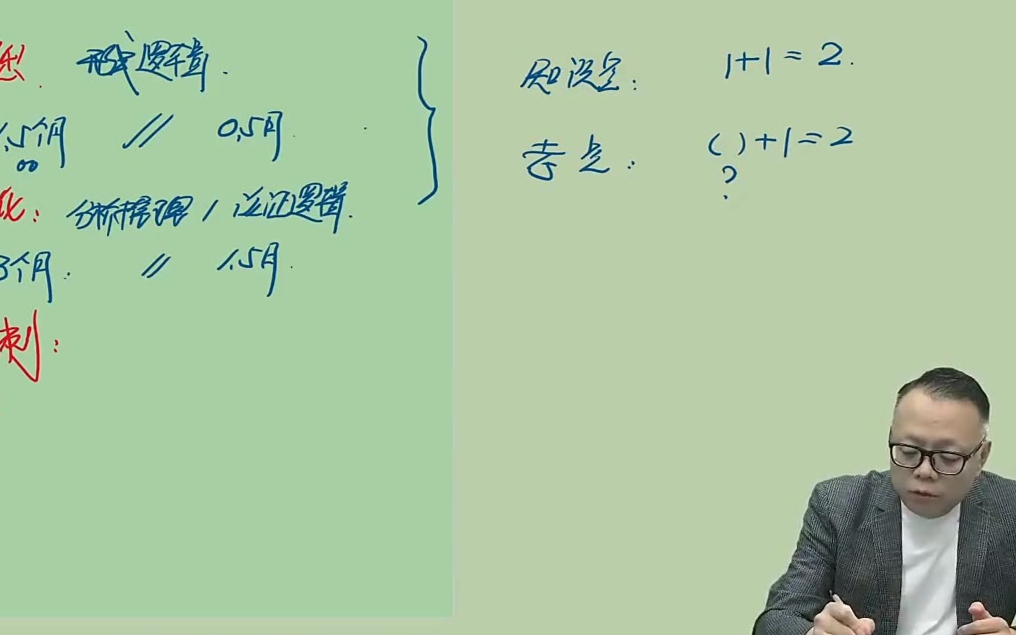 形式逻辑.
.5个月 // 0.5月.
化: 分析推理 / 论证逻辑.
3个月. // 1.5月.
刺:
知识点: 1+1=2.
考点: ( )+1=2
?